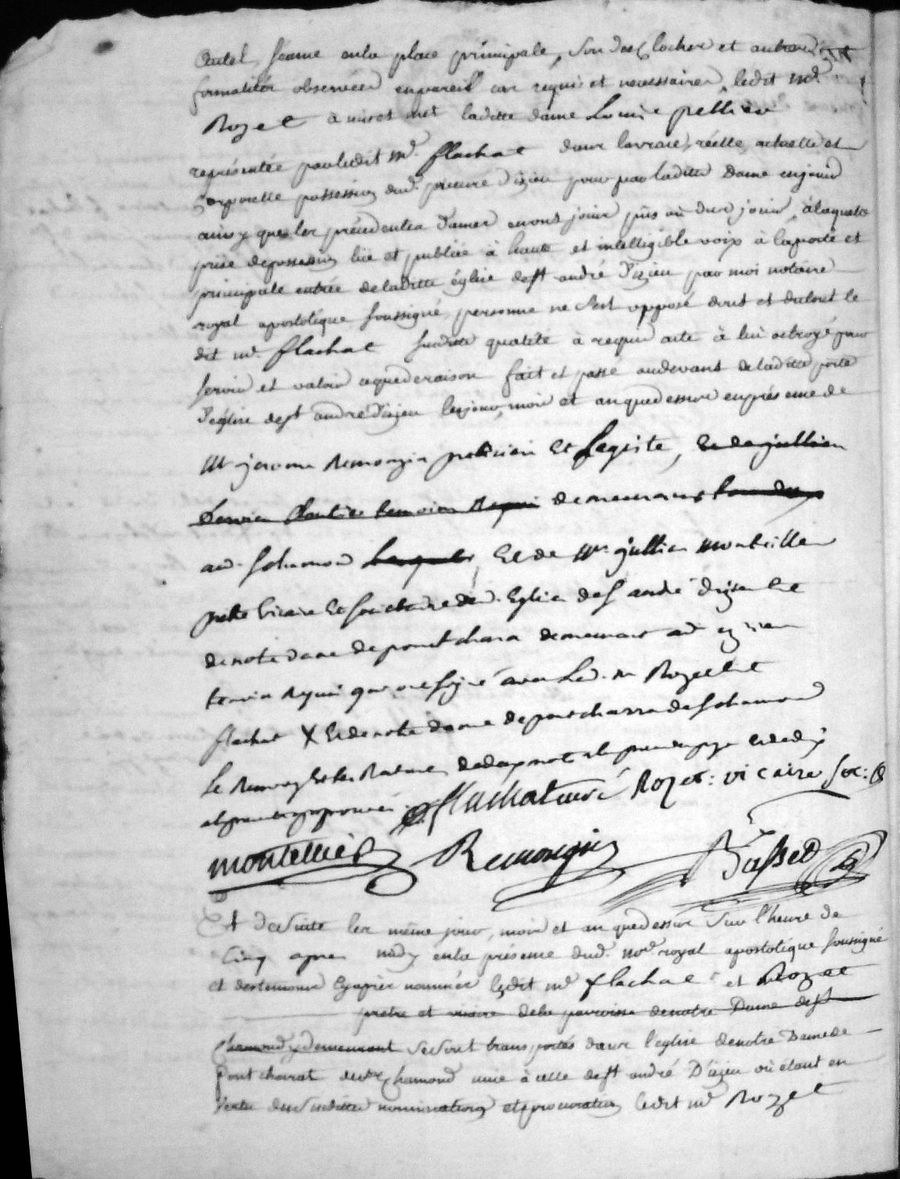 autel, séance en la place principale, son des clocher et autres
formalités observées en pareil cas requis et nécessaires, ledit mr
Rozet a mis et met laditte dame Louise pellier
représentée par ledit mr flachat dans la vraie, réelle, actuelle et
corporelle possession dud. prieuré d'izieu pour par laditte Dame en jouir
ainsy que les précédentes Dames en ont joui pu ou du jouir, à laquelle
prise de possession lüe et publiée à haute et intelligible voix à la porte et
principale entrée de laditte église de st andré d'izieu par moi notaire
royal apostolique soussigné, personne ne s'est opposé dont et du tout le
dit mr flachat susditte qualité a requis acte à lui octroyé pour
servir et valoir a que de raison fait et passé au devant de laditte porte
d'église de st andré d'izieu les jour, mois et an que dessus en présence de
Mr jerome Remongin praticien et Legiste, et de jullien
temoin Requis demeurants
au. st chamond et de Mr jullien Montellier
prêtre vicaire et societaire de lad. Eglise de st andré d'izieu et
de notre dame de pont chara demeurant aud. izieu
temoin Requis qui ont signé avec Led. mr Rozet et
flachat X et de notre dame de pont charra de st chamond
Le Renvoy et les Ratures
et approuvé flachat curé Rozet : vicaire soc :
montellier Remongin Basset
Et De Suitte les même jour, mois et an que dessus Sur l'heure de
Cinq apres midy en la présence dud. nore royal apostolique soussigné
et des temoins cy après nommés lesdit mr flachat et Rozet
prêtre et vicaire de la parroisse de notre Dame de st
Chamond y demeurant se seroit transportés dans l'église de notre Dame de
Pont charrat de st chamond unie à celle de st andré D'izieu où étant en
vertu des susdittes nominations et procuration ledit mr Rozet